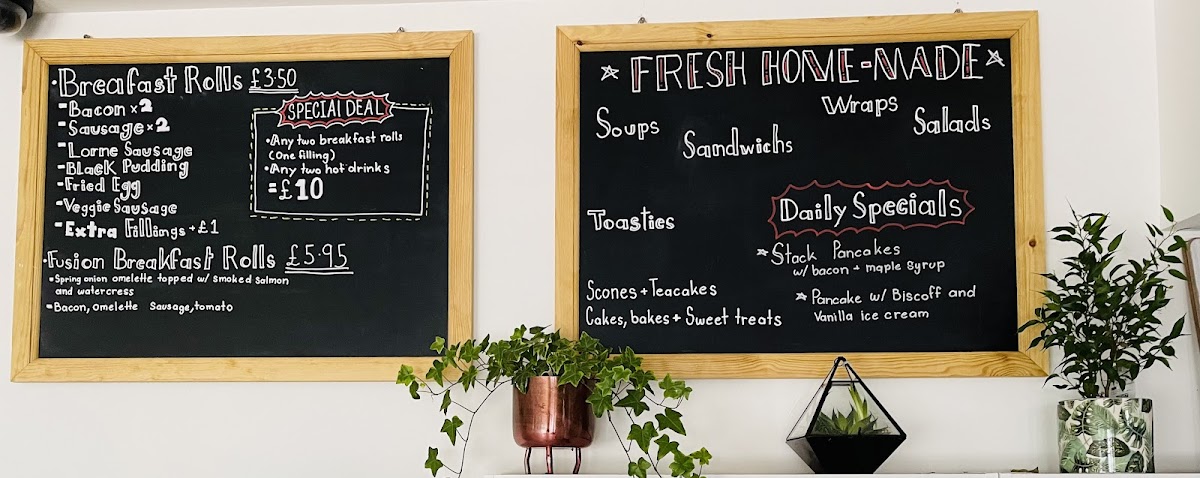 ·Breakfast Rolls £3.50
-Bacon x2
-Sausage x2
-Lorne Sausage
-Black Pudding
-Fried Egg
-Veggie Sausage
-Extra Fillings +£1
SPECIAL DEAL
·Any two breakfast rolls
(One filling)
·Any two hot drinks
=£10
·Fusion Breakfast Rolls £5.95
·Spring onion omelette topped w/ smoked salmon
and watercress
-Bacon, omelette Sausage, tomato
FRESH HOME-MADE
Soups
Sandwichs
Wraps
Salads
Toasties
Daily Specials
Stack Pancakes
w/ bacon + maple syrup
Pancake w/ Biscoff and
Vanilla ice cream
Scones + Teacakes
Cakes, bakes + Sweet treats